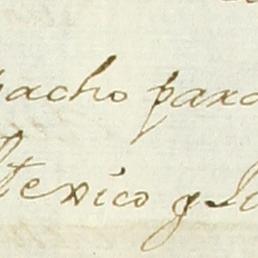 pacho para
Mexico y